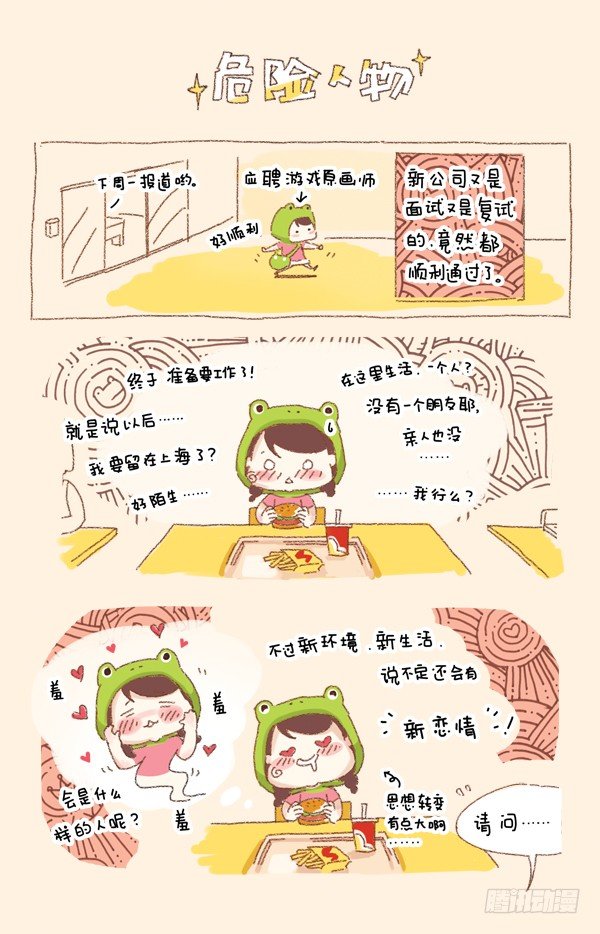 危险人物
下周一报道哟。
应聘游戏原画师
好顺利
新公司又是
面试又是复试
的、竟然都
顺利通过了。
终于准备要工作了!
就是说以后……
我要留在上海了?
好陌生……
在这里生活、一个人?
没有一个朋友耶,
亲人也没
……
……我行么?
不过新环境、新生活、
说不定还会有
新恋情!
羞
羞
羞
会是什么
样的人呢?
思想转变
有点大啊
……
请问……
腾讯动漫